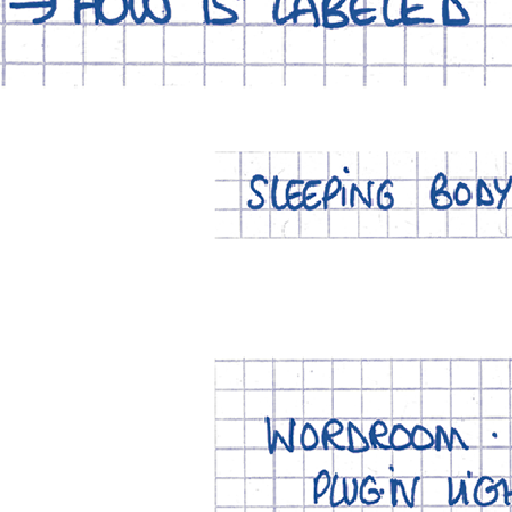 → HOW IS LABELED
SLEEPING BODY
WORDROOM .
PLUG·IN